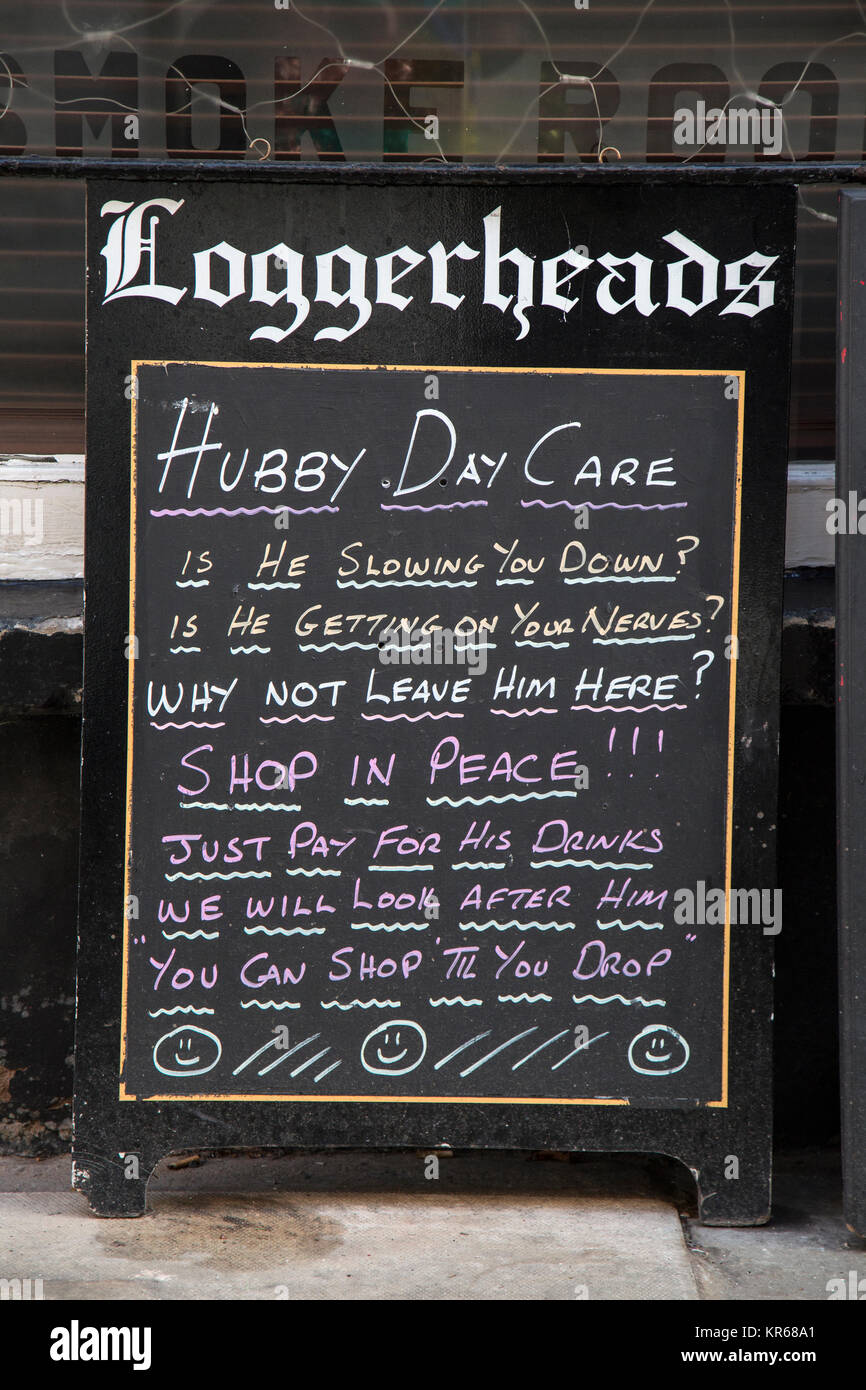 SMOKE ROO
Loggerheads
HUBBY DAY CARE
IS HE SLOWING YOU DOWN?
IS HE GETTING ON YOUR NERVES?
WHY NOT LEAVE HIM HERE?
SHOP IN PEACE!!!
JUST PAY FOR HIS DRINKS
WE WILL LOOK AFTER HIM
"YOU CAN SHOP 'TIL YOU DROP"
alamy
Image ID: KR68A1
www.alamy.com